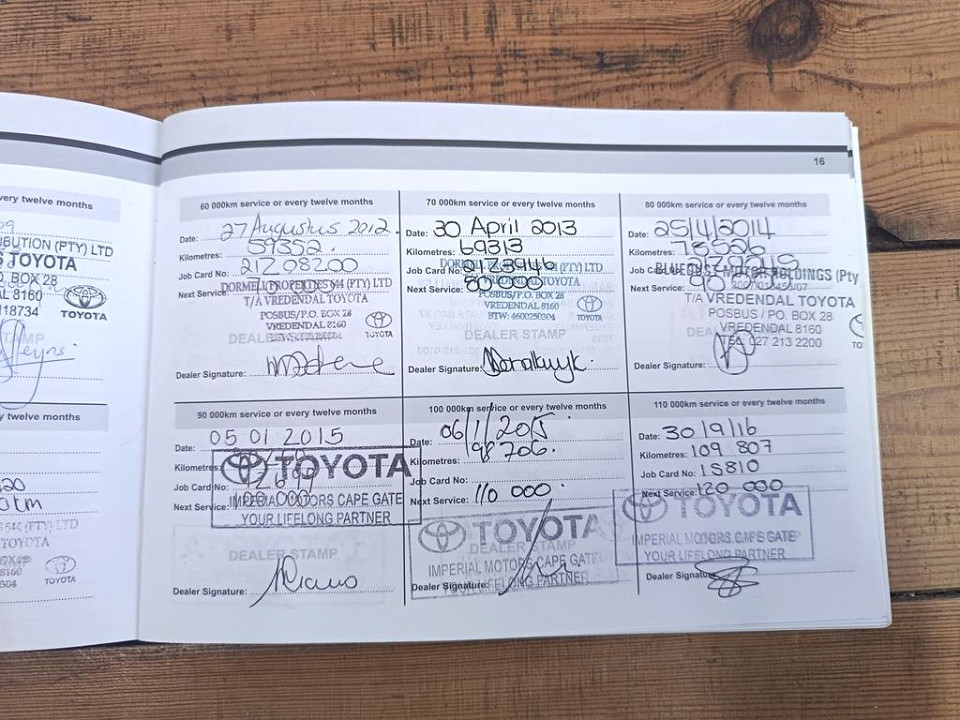 very twelve months
IBUTION (PTY) LTD
TOYOTA
BOX 28
8160
18734
TOYOTA
y twelve months
TOYOTA
TOYOTA
16
60 000km service or every twelve months
Date: 27 Augustus 2012.
Kilometres: 59352.
Job Card No: 21Z08200
Next Service:
(PTY) LTD
T/A VREDENDAL TOYOTA
POSBUS/P.O. BOX 28
VREDENDAL 8160
TOYOTA
Dealer Signature:
70 000km service or every twelve months
Date: 30 April 2013
Kilometres: 69313
Job Card No: 21Z3946
(PTY) LTD
Next Service: 80 000
TOYOTA
POSBUS/P.O. BOX 28
VREDENDAL 8160
BTW: 4600250304
TOYOTA
DEALER STAMP
Dealer Signature:
80 000km service or every twelve months
Date: 25/4/2014
Kilometres: 78526
Job Card No:
MOTOR HOLDINGS (Pty
Next Service:
T/A VREDENDAL TOYOTA
POSBUS / P.O. BOX 28
VREDENDAL 8160
TEL 027 213 2200
Dealer Signature:
90 000km service or every twelve months
Date: 05 01 2015
Kilometres:
TOYOTA
Job Card No:
Next Service:
IMPERIAL MOTORS CAPE GATE
YOUR LIFELONG PARTNER
DEALER STAMP
Dealer Signature:
100 000km service or every twelve months
Date: 06/1/2015
Kilometres: 98 706.
Job Card No:
Next Service: 110 000.
TOYOTA
DEALER STAMP
IMPERIAL MOTORS CAPE GATE
LIFELONG PARTNER
Dealer Signature:
110 000km service or every twelve months
Date: 30/9/16
Kilometres: 109 807
Job Card No: 15810
Next Service: 120 000
TOYOTA
IMPERIAL MOTORS CAPE GATE
YOUR LIFELONG PARTNER
Dealer Signature: